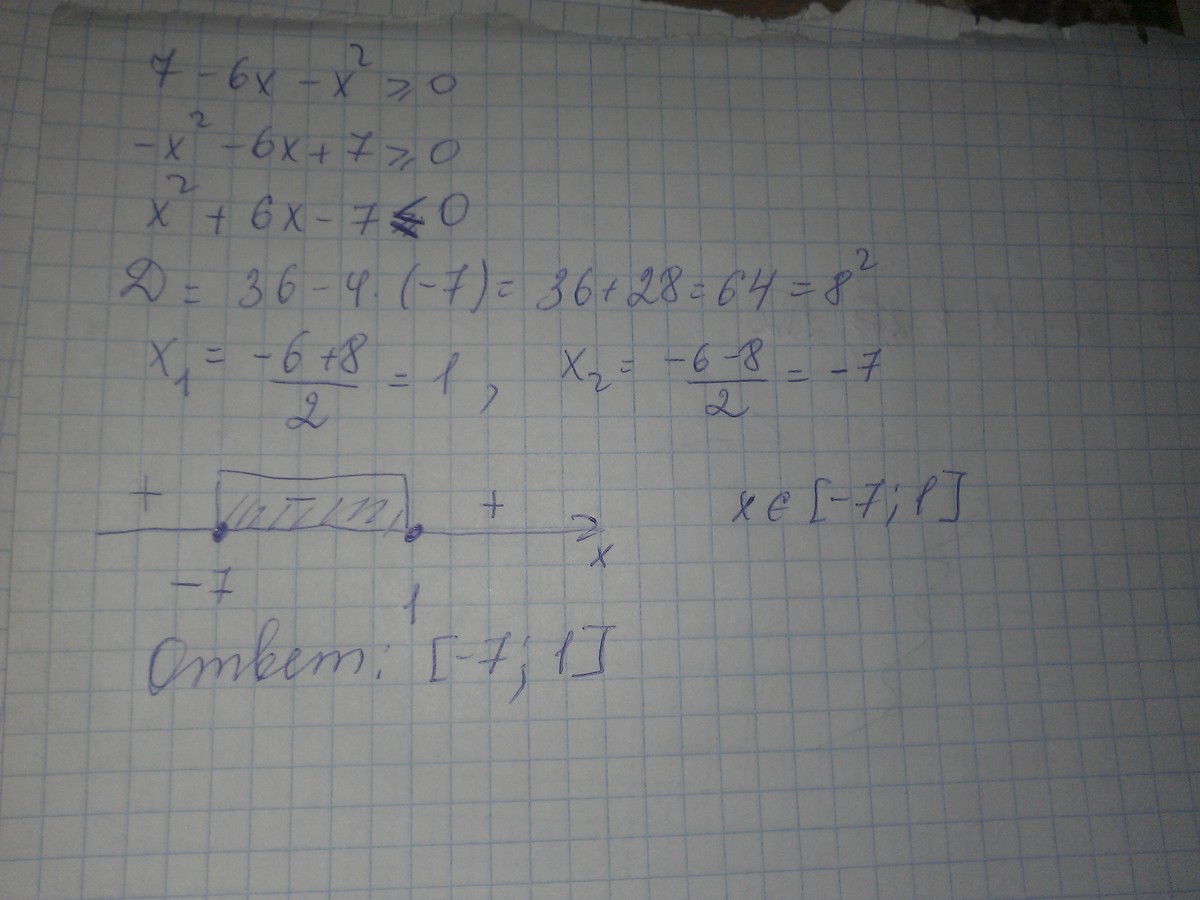 7 - 6x - x² ⩾ 0
-x² - 6x + 7 ⩾ 0
x² + 6x - 7 ⩽ 0
D = 36 - 4 · (-7) = 36 + 28 = 64 = 8²
x₁ = (-6 + 8)/2 = 1 , x₂ = (-6 - 8)/2 = -7
+ - + x ∈ [-7; 1]
-7 1 x
Ответ: [-7; 1]